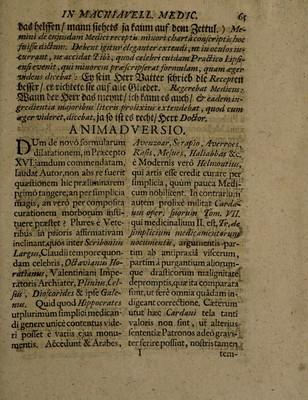 IN MACHIAVELL. MEDIC. 65
das helffen/ mann siehets ja kaum auf dem Zettul.) Me-
mini de ejusdam Medici recepti minore charta conscriptis hoc
fuisse dictum. Debent igitur eleganter extendi, ut in oculos in-
currant, ne accidat Tibi, quod celebri cuidam Practico Lipsi-
ensi evenit, qui minorem præscripserat formulam, quum æger
videns dicebat: Ey sein Herr Vatter schrieb die Receptt
besser/ er richtete sie auf alle Glieder. Regerebat Medicus:
Wann der Herr das meynt/ ich kanns auch/ & eadem in-
gredientia majoribus literis prolixius extendebat, quod cum
æger videret, dicebat, ja so ist es recht/ Herr Doctor.
ANIMADVERSIO.
DUm de novô formularum
dilatationem, in Præcepto
XVI. jamdum commendatam,
laudat Autor, non abs re fuerit
quæstionem hic præliminarem
primò tangere, an per simplicia
magis, an verò per composita
curationem morborum insti-
tuere præstet? Plures è Vete-
ribus in prioris affirmativam
inclinant, quos inter Scribonius
Largus, Claudii tempore quon-
dam celebris, Octavianus Ho-
ratianus, Valentiniani Impe-
ratoris Archiater, Plinius, Cel-
sus, Dioscorides & ipse Gale-
nus. Quid quod Hippocrates
utplurimum simplici medican-
di genere unicè contentus vide-
ri posset è variis ejus monu-
mentis. Accedunt & Arabes,
Avenzoar, Serapio, Averroes,
Rasis, Mesues, Haliabbas &c.
è Modernis verò Helmontius,
qui artis esse credit curare per
simplicia, quùm pauca Medi-
cum nobilitent. In contrarium
autem prolixè militat Carda-
nus oper. suorum Tom. VII.
qui medicinalium II. est, Tr. de
simplicium medicamentorum
nocumentis, argumentis par-
tim ab antipraxiâ viscerum,
partim à purgantium aliorum-
que drasticorum malignitate
depromptis, quæ ita comparata
sunt, ut ferè omnia quâdam in-
digeant correctione. Cæterum
utut hæc Cardani tela tanti
valoris non sint, ut alterius
sententiæ Patronos adeò gravi-
ter ferire possint, nostris tamen
I
tem-